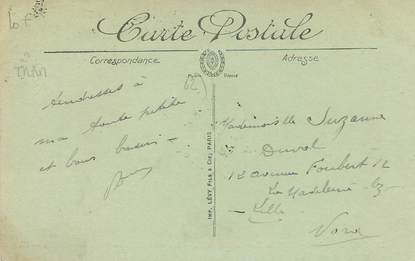 Carte Postale
Correspondance
Adresse
tendresses à
ma toute petite
et bons baisers -
IMP. LÉVY FILS & CIE, PARIS
Mademoiselle Suzanne
Duval
12 avenue Foubert 12
La Madeleine
Lille
Nord